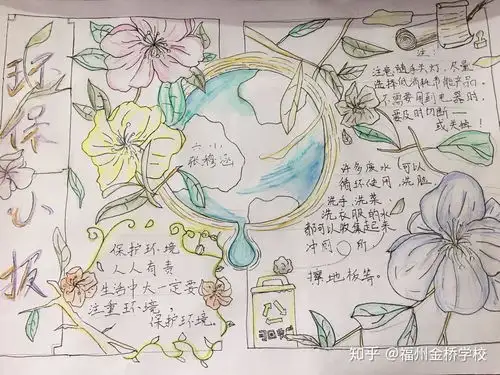 环保小报
六(一)
张穆涵
保护环境
人人有责
生活中大一定要
注重环境，
保护环境。
注：
注意随手关灯，尽量
选择低消耗节能产品。
不需要用到电器时，
要及时切断——
或关掉！
许多废水可以
循环使用，洗脸
洗手、洗菜、
洗衣服的水
都可以收集起来
冲厕所，
擦地板等。
可回收
知乎 @福州金桥学校